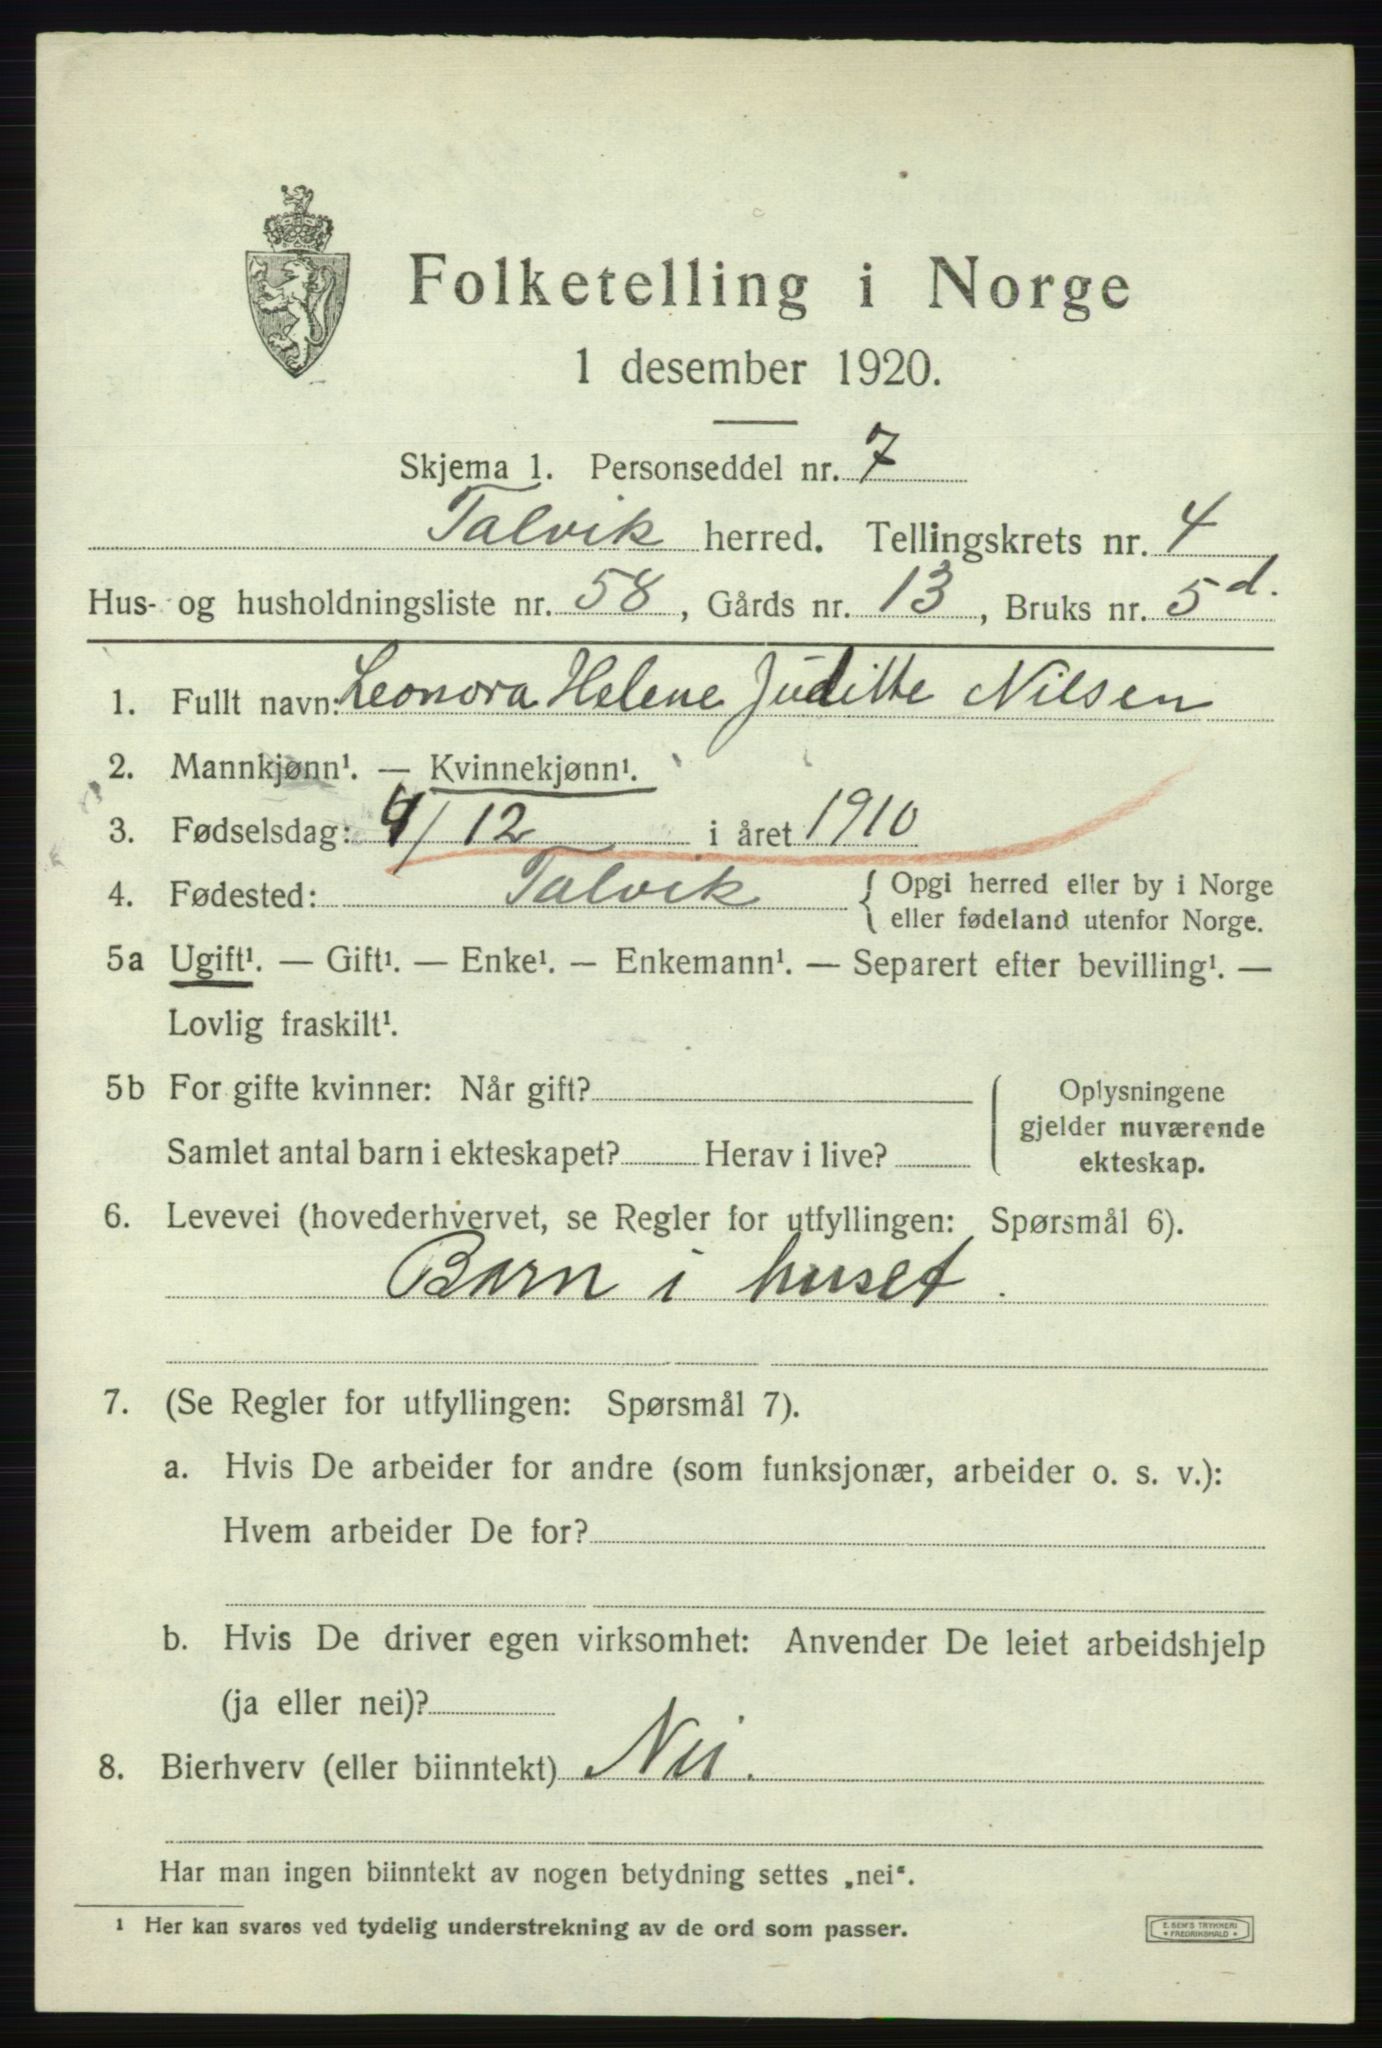 Folketelling i Norge
1 desember 1920.
Skjema 1. Personseddel nr. 7
Talvik herred. Tellingskrets nr. 4
Hus- og husholdningsliste nr. 58, Gårds nr. 13, Bruks nr. 5 d.
1. Fullt navn: Leonora Helene Juditte Nilsen
2. Mannkjønn¹. — Kvinnekjønn¹.
3. Fødselsdag: /12 i året 1910
4. Fødested: Talvik { Opgi herred eller by i Norge
eller fødeland utenfor Norge.
5a Ugift¹. — Gift¹. — Enke¹. — Enkemann¹. — Separert efter bevilling¹. —
Lovlig fraskilt¹.
5b For gifte kvinner: Når gift?
Samlet antal barn i ekteskapet? Herav i live?
Oplysningene
gjelder nuværende
ekteskap.
6. Levevei (hovederhvervet, se Regler for utfyllingen: Spørsmål 6).
Barn i huset.
7. (Se Regler for utfyllingen: Spørsmål 7).
a. Hvis De arbeider for andre (som funksjonær, arbeider o. s. v.):
Hvem arbeider De for?
b. Hvis De driver egen virksomhet: Anvender De leiet arbeidshjelp
(ja eller nei)?
8. Bierhverv (eller biinntekt) Nei.
Har man ingen biinntekt av nogen betydning settes „nei“.
¹ Her kan svares ved tydelig understrekning av de ord som passer.
E. SEM'S TRYKKERI
* FREDRIKSHALD *